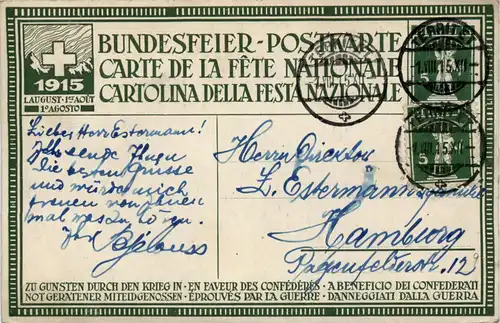 BUNDESFEIER-POSTKARTE
CARTE DE LA FÊTE NATIONALE
CARTOLINA DELLA FESTA NAZIONALE
1915
1.AUGUST · 1ER AOÛT
1O AGOSTO
TERRITET
1.VIII.15.XII
5
5
Lieber Herr Estermann!
Ihnen
die besten Grüsse
und würde mich
freuen von Ihnen
mal was zu hören.
Ihr
Herrn Direktor
L. Estermann
Hamburg
Pagenfelderstr. 129
ZU GUNSTEN DURCH DEN KRIEG IN · EN FAVEUR DES CONFÉDÉRÉS · A BENEFICIO DEI CONFEDERATI
NOT GERATENER MITEIDGENOSSEN · ÉPROUVÉS PAR LA GUERRE · DANNEGGIATI DALLA GUERRA